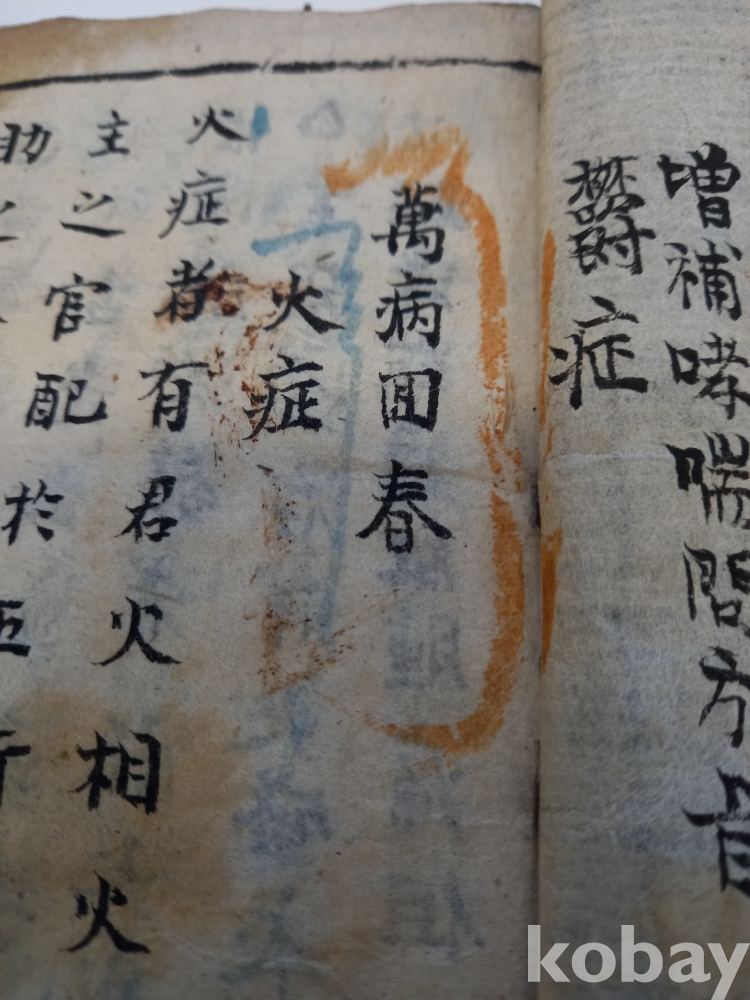 增補哮喘問方
鬱症
萬病回春
火症
火症者有君火相火
主之官配於
助之
kobay